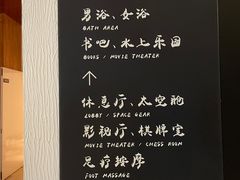 男浴、女浴
BATH AREA
书吧、水上乐园
BOOKS / MOVIE THEATER
↑
休息厅、太空舱
LOBBY / SPACE GEAR
影视厅、棋牌室
MOVIE THEATER / CHESS ROOM
足疗按摩
FOOT MASSAGE